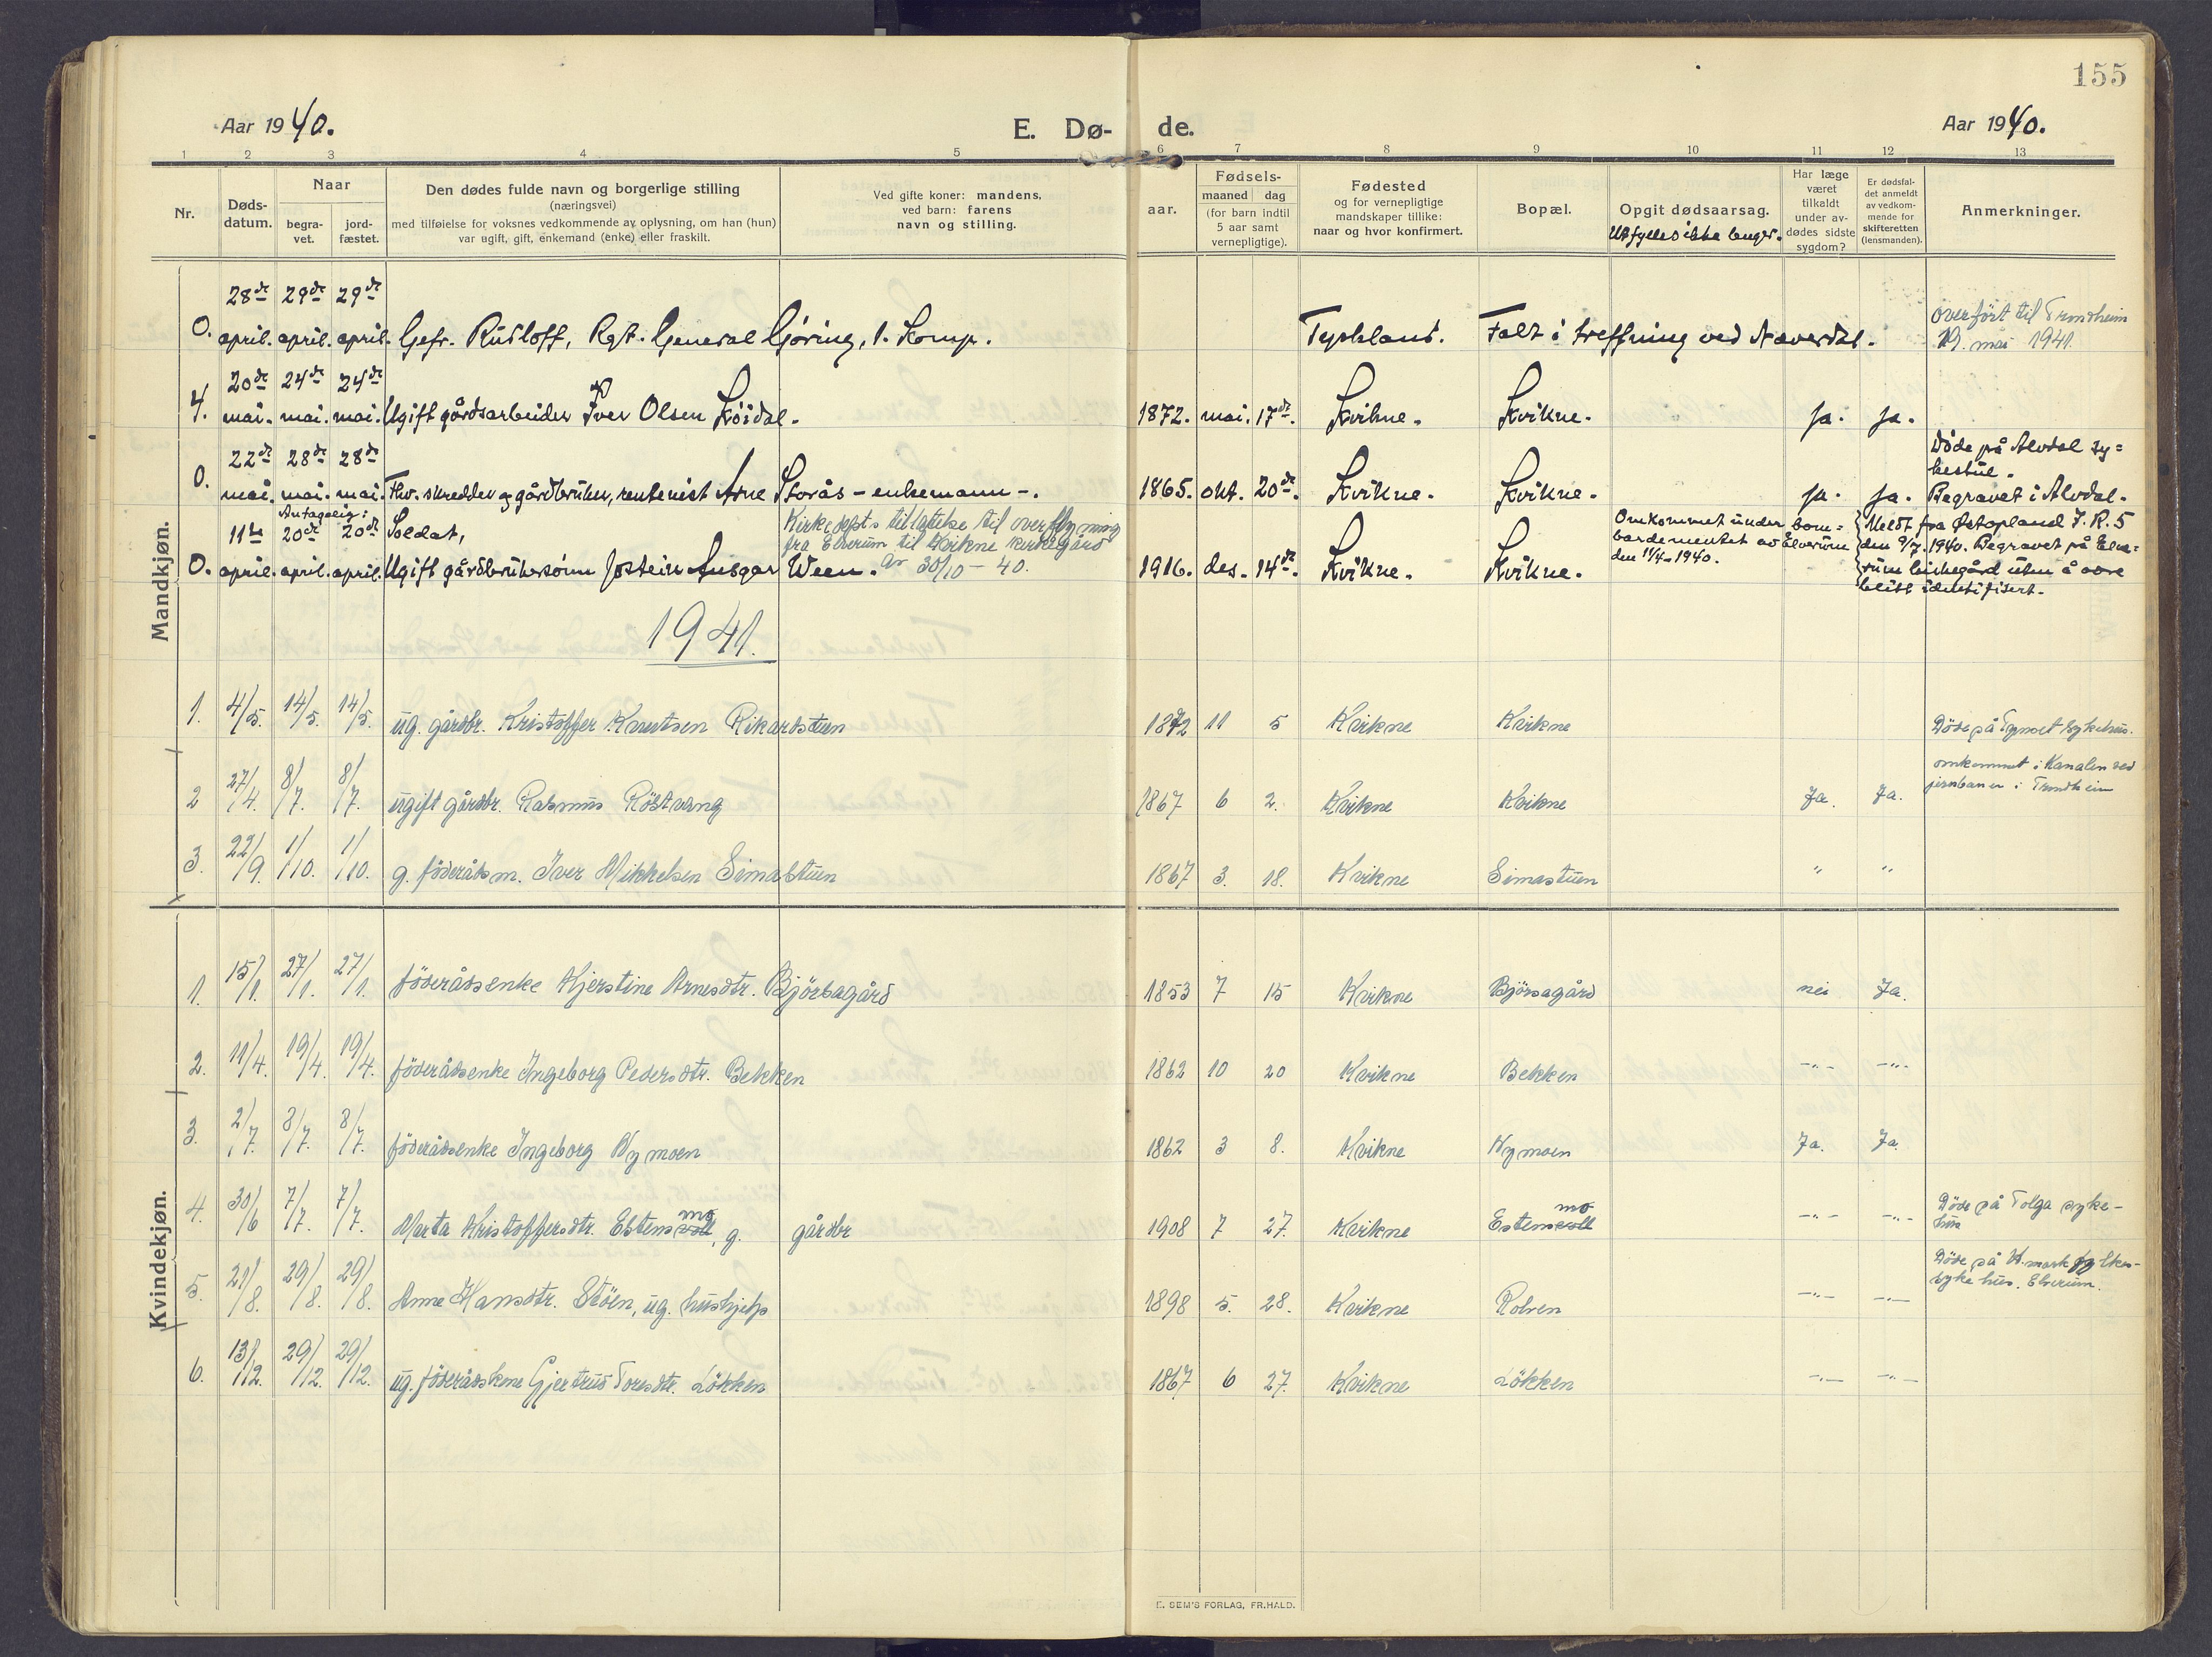 155
Aar 1940.
E. Dø- de.
Aar 1940.
1 2 3 4 5 6 7 8 9 10 11 12 13
Nr.
Døds-datum.
Naar
begra-vet.
jord-fæstet.
Den dødes fulde navn og borgerlige stilling
(næringsvei)
med tilføielse for voksnes vedkommende av oplysning, om han (hun)
var ugift, gift, enkemand (enke) eller fraskilt.
Ved gifte koner: mandens,
ved barn: farens
navn og stilling.
Fødsels-
aar.
maaned dag
(for barn indtil
5 aar samt
vernepligtige).
Fødested
og for vernepligtige
mandskaper tillike:
naar og hvor konfirmert.
Bopæl.
Opgit dødsaarsag.
Utfylles ikke lenger.
Har læge
været
tilkaldt
under av-
dødes sidste
sygdom?
Er dødsfal-
det anmeldt
av vedkom-
mende for
skifteretten
(lensmanden).
Anmerkninger.
Mandkjøn.
0. 28de april. 29de april. 29de april. Gefr. Rudloff, Rgt. General Gøring, 1. Komp. Tyskland. Falt i treffning ved Næverdal. overført til Trondheim
19. mai 1941.
4. 20de mai. 24de mai. 24de mai. Ugift gårdsarbeider Iver Olsen Køidal. 1872. mai. 17de. Kvikne. Kvikne. Ja. Ja.
0. 22de mai. 28de mai. 28de mai. Fhv. skredder og gårdbruker, rentenist Arne Storås - enkemann -. 1865. okt. 20de. Kvikne. Kvikne. Ja. Ja. Døde på Alvdal sy=
kestue.
Begravet i Alvdal.
0. 11te april. Antagelig: 20de april. 20de april. Soldat,
Ugift gårdbrukersønn Jostein Ansgar Ween. Kirkedept.s tillatelse til overflygning
fra Elverum til Kvikne kirkegård
av 30/10 - 40. 1916. des. 14de. Kvikne. Kvikne. Omkommet under bom=
bardementet av Elverum
den 11/4-1940. Meldt fra Østopland I.R.5
den 9/7.1940. Begravet på Elve=
rum kirkegård uten å være
blitt identifisert.
1941.
1. 4/5. 14/5. 14/5. ug. gårdbr. Kristoffer Knutsen Rikardstuen 1872 11 5 Kvikne Kvikne Døde på Tynset sykehus.
2 27/4. 8/7. 8/7. ugift gårdbr. Rasmus Röstvang 1867 6 2. Kvikne Kvikne Ja. Ja. omkommet i Kanalen ved
jernbanen i Trondheim
3. 22/9. 1/10. 1/10. g. föderåtsm. Iver Mikkelsen Simastuen 1867 3. 18. Kvikne Simastuen " "
Kvindekjøn.
1. 15/1. 27/1. 27/1. föderådsenke Kjerstine Arnesdtr. Bjørsagård 1853 7 15 Kvikne Bjørsagård nei Ja.
2. 11/4. 19/4. 19/4. föderådsenke Ingeborg Pedersdtr. Bekken 1862 10 20 Kvikne Bekken -"- -"-
3. 2/7. 8/7. 8/7. föderådsenke Ingeborg Nymoen 1862 3 8. Kvikne Nymoen Ja. Ja.
4. 30/6 7/7. 7/7. Marta Kristoffersdtr. Estensmo, g. gårdbr 1908 7 27. Kvikne Estensmo -"- -"- Döde på Tolga syke-
hus
5. 21/8. 29/8. 29/8. Anne Hansdtr. Stöen, ug. hushjelp 1898 5. 28. Kvikne -"- -"- Döde på H.mark fylkes-
sykehus. Elverum.
6. 13/12. 29/12. 29/12. ug. Gjertrud Toresdtr. Lökken 1867 6 27. Kvikne Lökken -"- -"-
E. SEM'S FORLAG, FR.HALD.